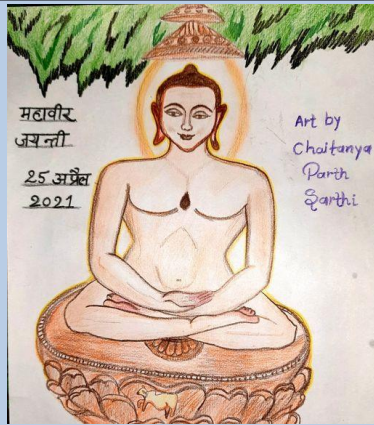 महावीर
जयन्ती
25 अप्रैल
2021
Art by
Chaitanya
Parth
Sarthi